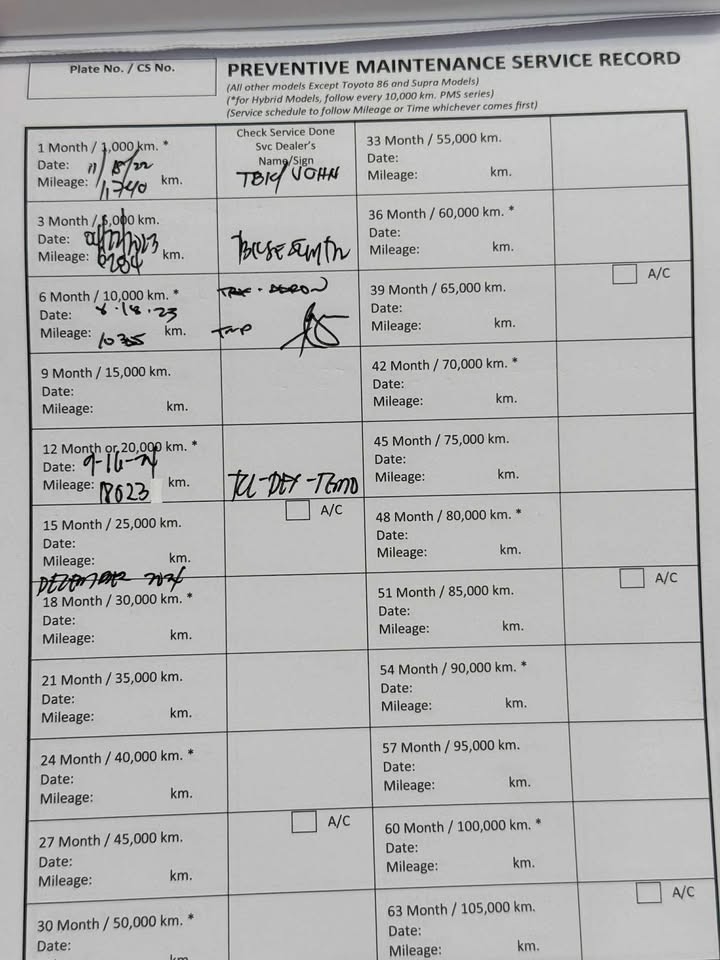 Plate No. / CS No.
PREVENTIVE MAINTENANCE SERVICE RECORD
(All other models Except Toyota 86 and Supra Models)
(*for Hybrid Models, follow every 10,000 km. PMS series)
(Service schedule to follow Mileage or Time whichever comes first)
1 Month / 1,000 km. *
Date: 11/18/22
Mileage: 1,740 km.
Check Service Done
Svc Dealer's
Name/Sign
TBK/ JOHN
3 Month / 5,000 km.
Date: 04/22/2023
Mileage: 6204 km.
6 Month / 10,000 km. *
Date: 8.18.23
Mileage: 10365 km.
9 Month / 15,000 km.
Date:
Mileage: km.
12 Month or 20,000 km. *
Date: 9-16-24
Mileage: 18023 km.
TCL-DEX-TEMO
15 Month / 25,000 km.
Date:
Mileage: km.
A/C
DECEMBER 2024
18 Month / 30,000 km. *
Date:
Mileage: km.
21 Month / 35,000 km.
Date:
Mileage: km.
24 Month / 40,000 km. *
Date:
Mileage: km.
27 Month / 45,000 km.
Date:
Mileage: km.
A/C
30 Month / 50,000 km. *
Date:
km.
33 Month / 55,000 km.
Date:
Mileage: km.
36 Month / 60,000 km. *
Date:
Mileage: km.
39 Month / 65,000 km.
Date:
Mileage: km.
A/C
42 Month / 70,000 km. *
Date:
Mileage: km.
45 Month / 75,000 km.
Date:
Mileage: km.
48 Month / 80,000 km. *
Date:
Mileage: km.
51 Month / 85,000 km.
Date:
Mileage: km.
A/C
54 Month / 90,000 km. *
Date:
Mileage: km.
57 Month / 95,000 km.
Date:
Mileage: km.
60 Month / 100,000 km. *
Date:
Mileage: km.
63 Month / 105,000 km.
Date:
Mileage: km.
A/C